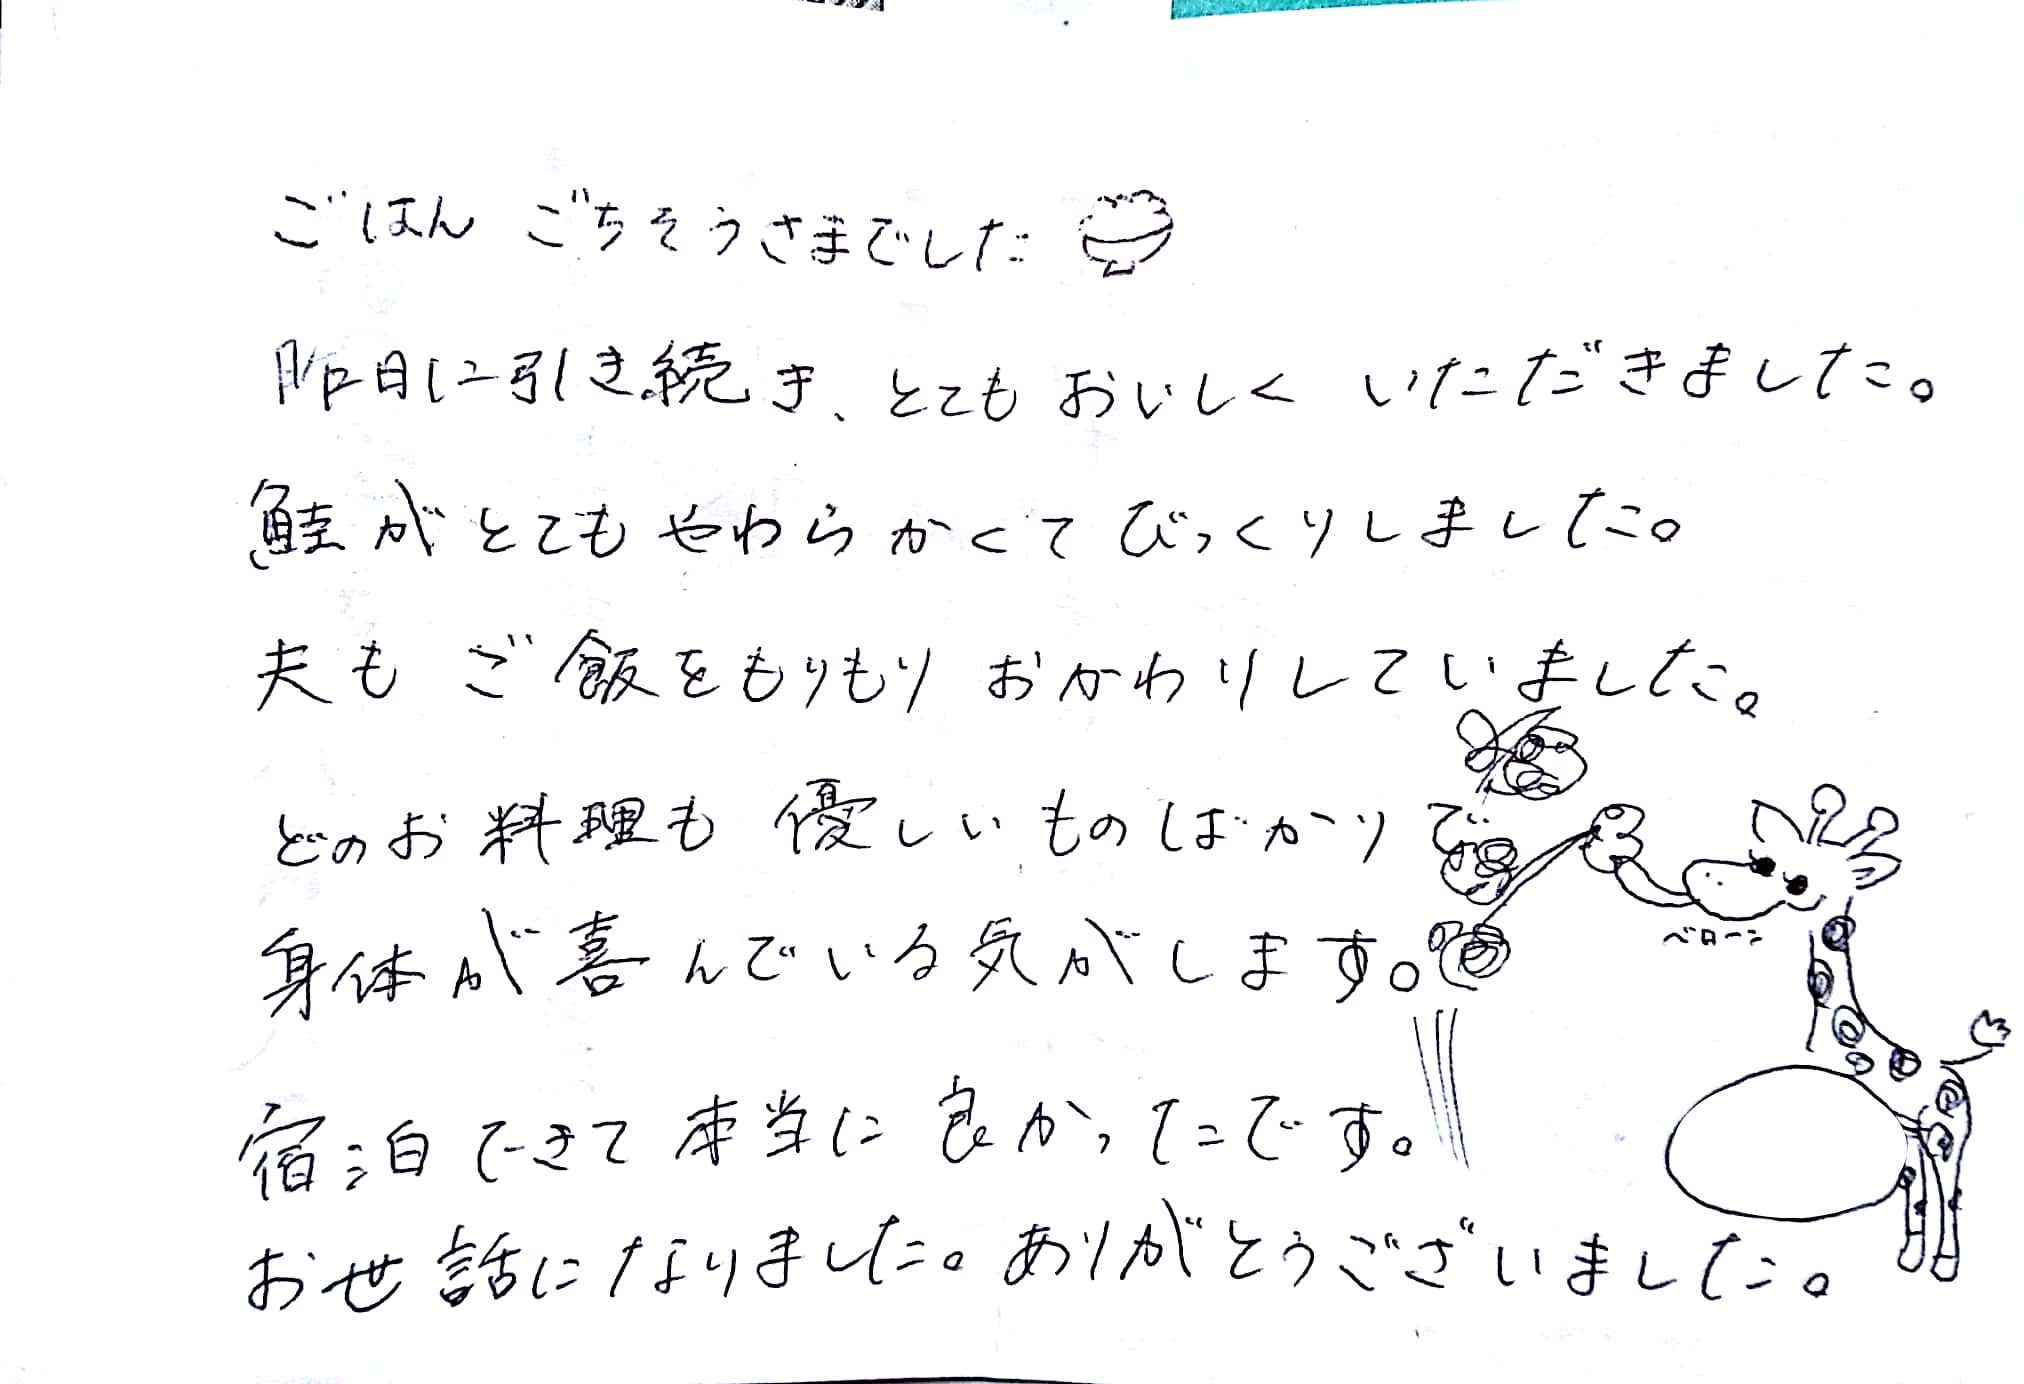 ごはん ごちそうさまでした
昨日に引き続き、とても おいしく いただきました。
鮭がとてもやわらかくてびっくりしました。
夫も ご飯をもりもり おかわりしていました。
どのお料理も 優しいものばかりで
身体が喜んでいる気がします。
ベローン
宿泊できて 本当に 良かったです。
お世話になりました。ありがとうございました。